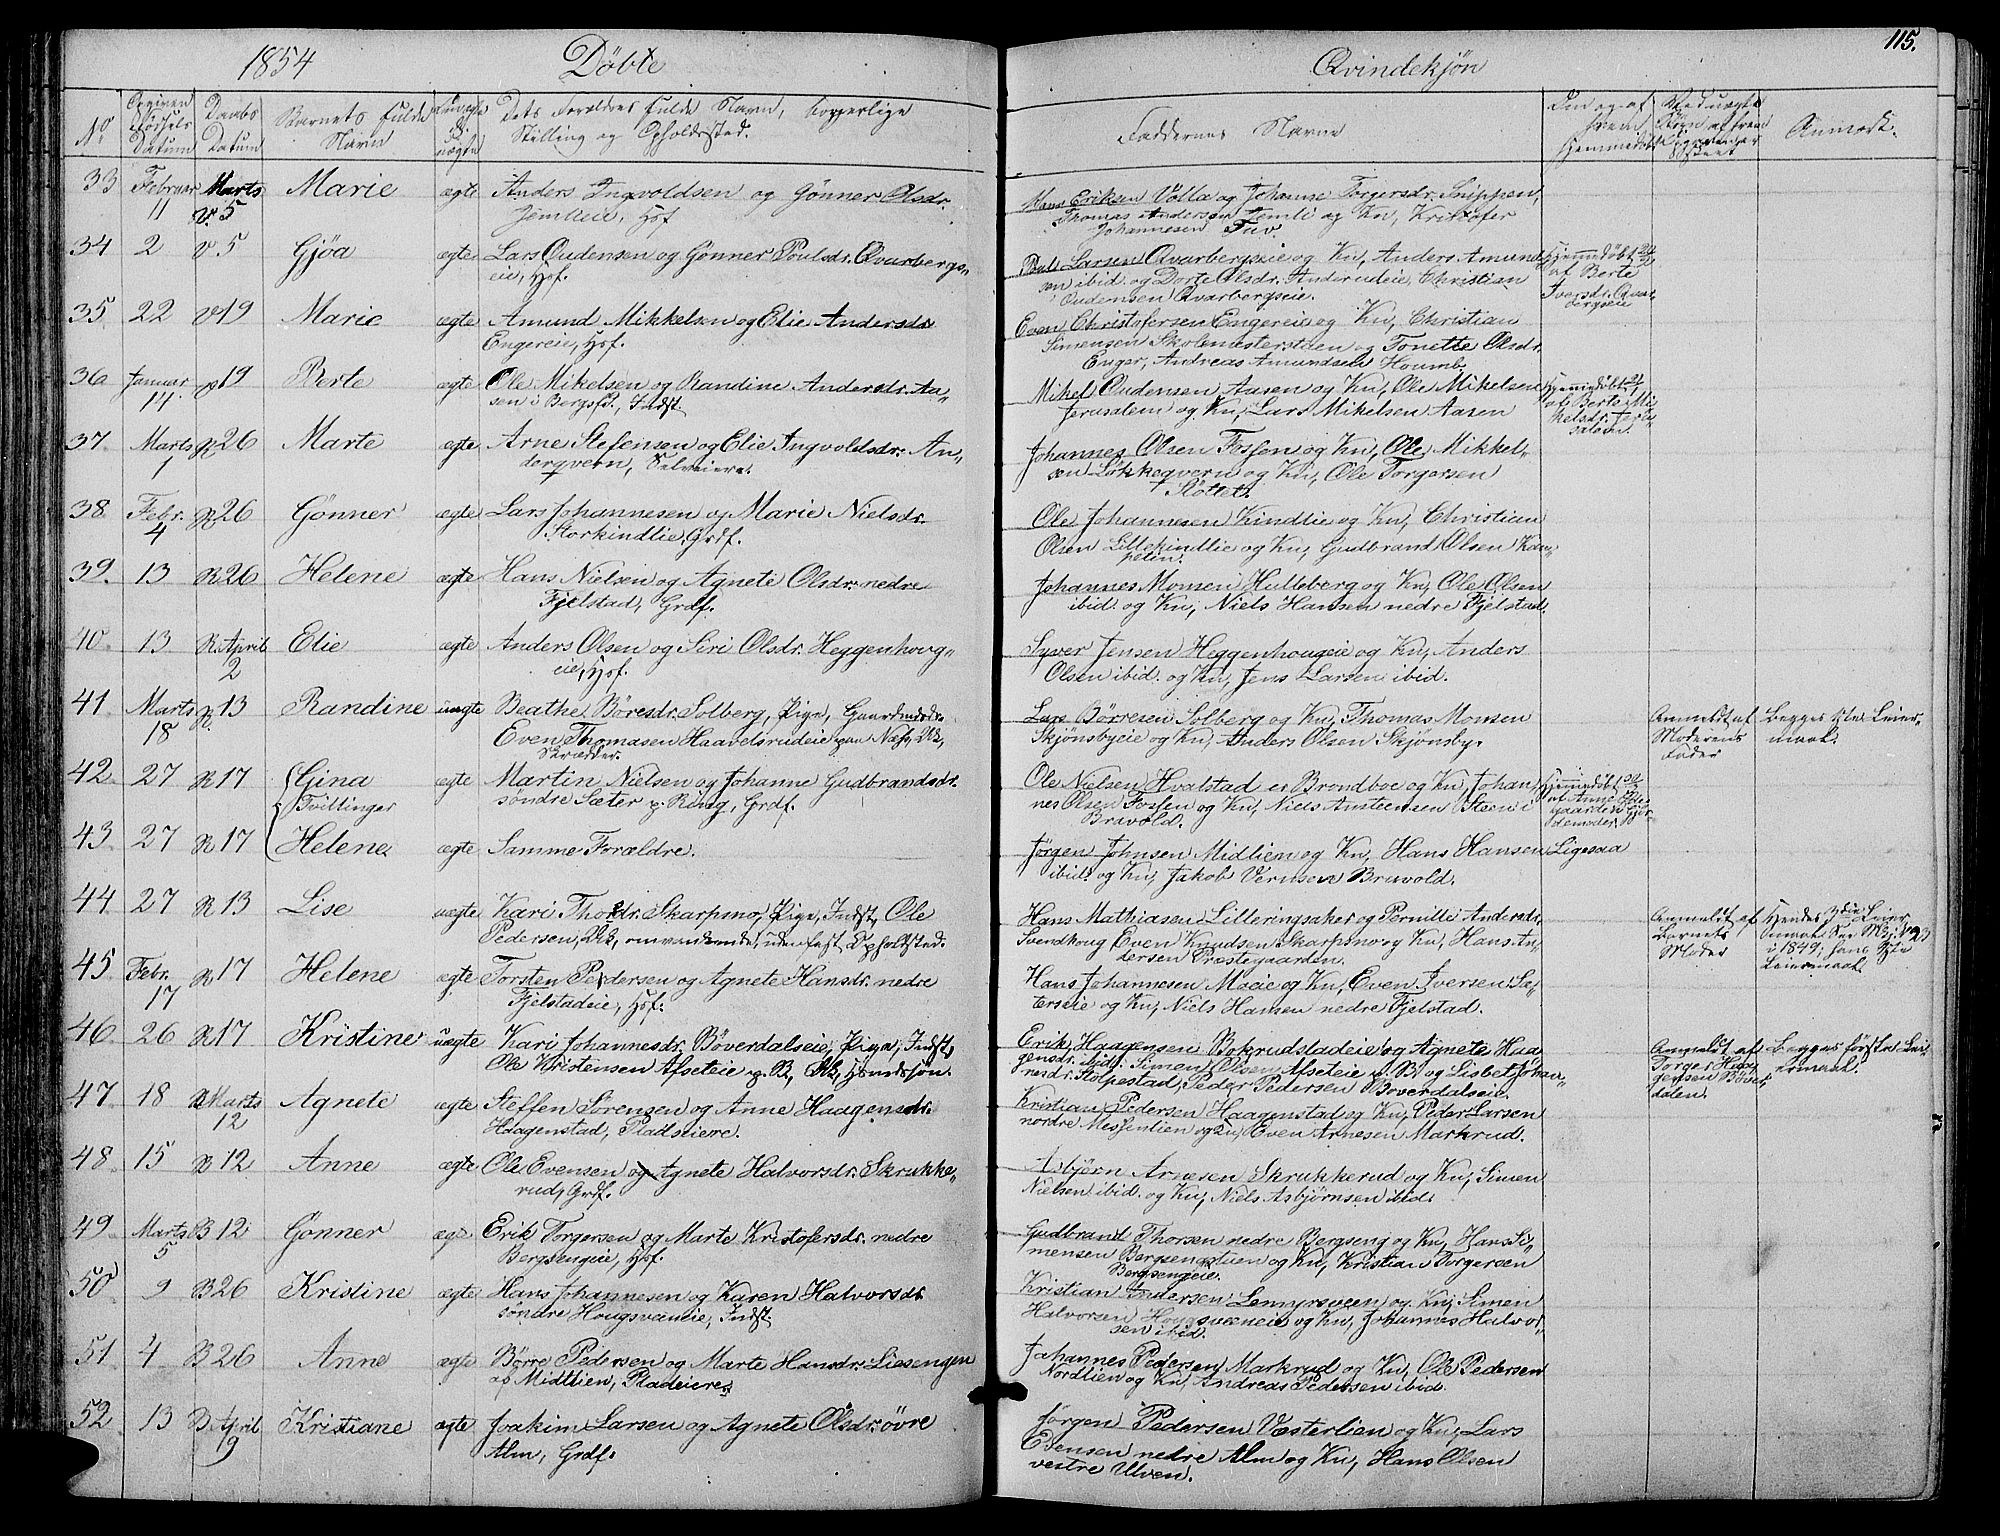 1854 Döbte
Qvindekjön 115.
No
Datum
Daabs Datum
Barnets fulde Navn
ægte uægte
Dets Forældres fulde Navn, borgerlige
Stilling og Opholdssted.
Faddernes Navne
Om og af hvem hjemmedöbt
Anmærk.
33 Februar 11 Marts V. 5 Marie ægte Anders Ingvoldsen og Gönner Olsdr.
Jemlieie, Hsf
Hans Eriksen Völla og Johanne Torgersdr. Snippen,
Thomas Andersen Jemli og Kn, Kristofer
Johannesen Tuv.
34 2 V 5 Gjöa ægte Lars Oudensen og Gönner Poulsdr. Qvarbergs-
eie, Hsf.
Poul Larsen Qvarbergseie og Kn, Anders Amund-
sen ibid. og Dorte Olsdr. Anderudeie, Christian
Oudensen Qvarbergseie.
Hjemmedöbt
af Berte
Iversdr. Qvar-
bergseie
35 22 V 19 Marie ægte Amund Mikkelsen og Elie Andersdr
Engereie, Hsf.
Even Christofersen Engereie og Kn, Christian
Simensen Skolemesterstuen og Tonette Olsdr.
Enger, Andreas Amundsen Houmb.
36 Januar 14 V 19 Berte ægte Ole Mikelsen og Randine Andersdr. Aa-
sen i Bergsfd., Indst.
Mikel Oudensen Aasen og Kn, Ole Mikelsen
Jerusalem og Kn, Lars Mikelsen Aasen
Hjemmedöbt
af Berte Mi-
kelsdr. Jeru-
salem.
37. Marts 1 R 26 Marte ægte Arne Stefensen og Elie Ingvoldsdr. An-
dorqvern, Selveiere.
Johannes Olsen Fossen og Kn, Ole Mikkel-
sen Løkkeqvern og Kn, Ole Torgersen
Slottet.
38 Febr. 4 R 26 Gönner ægte Lars Johannesen og Marie Nielsdr.
Storkindlie, Grdf.
Ole Johannesen Kindlie og Kn, Christian
Olsen Lillekindlie og Kn, Gudbrand Olsen Kam-
petin.
39. 13 R 26 Helene ægte Hans Nielsen og Agnete Olsdr. nedre
Fjelstad, Grdf.
Johannes Monsen Hulleberg og Kn, Ole Olsen
ibid. og Kn, Niels Hansen nedre Fjelstad.
40. 13 R. April 2 Elie ægte Anders Olsen og Siri Olsdr. Heggenhoug-
eie, Hsf.
Syver Jensen Heggenhougeie og Kn, Anders
Olsen ibid. og Kn, Jens Larsen ibid.
41 Marts 18 R. 13 Randine uægte Beathe Börresdr. Solberg, Pige,
Even Thomasen Haavelsrudeie paa Næs,
Skrædder.
Lars Börresen Solberg og Kn, Thomas Monsen
Skjönsbyeie og Kn, Anders Olsen Skjönsby.
Anmeldt af
Moderens
Fader
Begges 1ste Leier-
maal.
42 27 R 17 Gina
Tvillinger
ægte Martin Nielsen og Johanne Gudbrandsdr.
söndre Sæter p. Ring, Grdf.
Ole Nielsen Hvalstad Brondboe og Kn, Johan-
nes Olsen Fossen og Kn, Niels Austeensen Steen i
Bruvold.
Hjemmedöbt
af Anne
43 27 R 17 Helene ægte Samme Forældre.
Jörgen Johnsen Midtlien og Kn, Hans Hansen
ibid. og Kn, Jakob Vernsen Bruvold.
Ligesaa
44 27 R 13 Lise uægte Kari Thordr. Skarpsno, Pige, Indst, Ole
Pedersen, Uk, omvandrende, uden fast Opholdsted.
Hans Mathiasen Lilleringsaker og Pernille Andersdr.
Svendhoug Even Knudsen Skarpsno og Kn, Hans An-
dersen Præstegaarden.
Anmeldt af
Barnets
Moder
Hendes 3die Leier-
maal. See Mj. No 23
i 1849, hans 1ste
Leiermaal.
45 Febr. 17 R 17 Helene ægte Torsten Pedersen og Agnete Hansdr. nedre
Fjelstadeie, Hsf.
Hans Johannesen Moeie og Kn, Even Iversen Sæ-
terseie og Kn, Niels Hansen nedre Fjelstad.
46 26 R 17 Kristine uægte Kari Johannesdr. Böverdalseie, Pige, Indst,
Ole Kristensen Afseteie p. B, Uk, Huusmandssön.
Erik Haagensen Bokrudstadeie og Agnete Haa-
gensdr. ibid. Simen Olsen Afseteie p. B. og Lisbet Johan-
nesdr. Stolpestad, Peder Pedersen Böverdalseie.
Anmeldt af
Torger Haa-
gensen Böver-
dalen.
Begges förste Lei-
ermaal.
47 18 B Marts 12 Agnete ægte Steffen Sörensen og Anne Haagensdr.
Haagenstad, Pladseiere.
Kristian Pedersen Haagenstad og Kn, Peder Larsen
nordre Messenlien og Kn, Even Arnesen Markrud.
48 15 B 12 Anne ægte Ole Evensen og Agnete Halvorsdr. Skrukke-
rud, Grdf.
Asbjörn Arnesen Skrukkerud og Kn, Simen
Nielsen ibid. og Kn, Niels Asbjörnsen ibid.
49 Marts 5 B 12 Gönner ægte Erik Torgersen og Marte Kristofersdr. nedre
Bergsengeie, Hsf.
Gudbrand Thorsen nedre Bergseng og Kn, Hans Si-
mensen Bergsengstuen og Kn, Kristian Torgersen
Bergsengeie.
50 9 B 26 Kristine ægte Hans Johannesen og Karen Halvorsdr
söndre Hougsveeneie, Indst.
Kristian Andersen Lemyrsveen og Kn, Simen
Halvorsen Hougsveeneie og Kn, Johannes Halvor-
sen ibid.
51 4 B 26 Anne ægte Börre Pedersen og Marte Hansdr. Liesengen
af Midtlien, Pladseiere
Johannes Pedersen Markrud og Kn, Ole Pedersen
Nordlien og Kn, Andreas Pedersen ibid.
52 13 B. April 9 Kristiane ægte Joakim Larsen og Agnete Olsdr. övre
Alm, Grdf.
Jörgen Pedersen Vesterlien og Kn, Lars
Evensen nedre Alm og Kn, Hans Olsen
vestre Ulven.